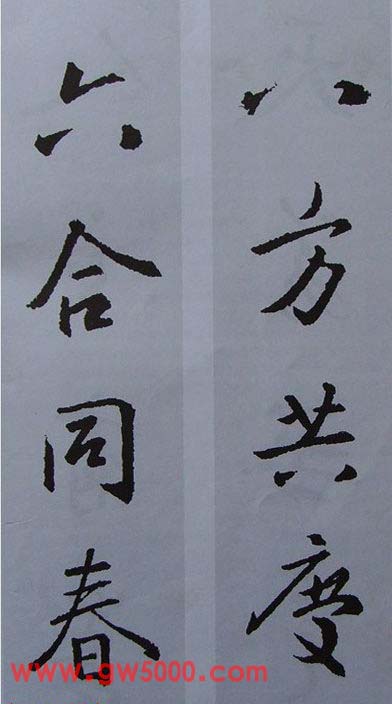 八方共慶
六合同春
www.gw5000.com